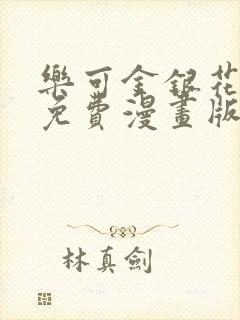 樂可金銀花
免費漫畫版
林真劍